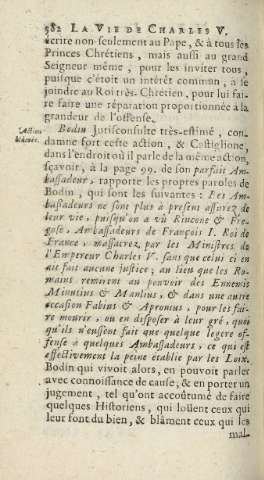 582 LA VIE DE CHARLES V.
écrire non-seulement au Pape, & à tous les
Princes Chrétiens, mais aussi au grand
Seigneur même, pour les inviter tous,
puisque c'étoit un intérêt commun, a se
joindre au Roi très-Chretien, pour lui fai-
re faire une réparation proportionnée à la
grandeur de l'offense.
Bodin Jurisconsulte très-estimé, con-
damne fort ceste action, & Castiglione,
dans l'endroit où il parle de la même action,
sçavoir, à la page 99. de son parfait Am-
bassadeur, rapporte les propres paroles de
Bodin, qui sont les suivantes: Les Am-
bassadeurs ne sont plus à present assurez de
leur vie, puisqu'on a vû Rincone & Fre-
gose, Ambassadeurs de François I. Roi de
France, massacrez, par les Ministres de
l'Empereur Charles V. sans que celui ci en
ait fait aucune justice; au lien que les Ro-
mains remirent au pouvoir des Ennemis
Minutius & Manlius, & dans une autre
occasion Fabius & Apronius, pour les fai-
re mourir, ou en disposer à leur gré, quoi
qu'ils n'eussent fait que quelque legere of-
fense à quelques Ambassadeurs, ce qui est
effectivement la peine établie par les Loix.
Bodin qui vivoit alors, en pouvoit parler
avec connoissance de cause, & en porter un
jugement, tel qu'ont accoûtumé de faire
quelques Historiens, qui loüent ceux qui
leur font du bien, & blâment ceux qui les
mal-